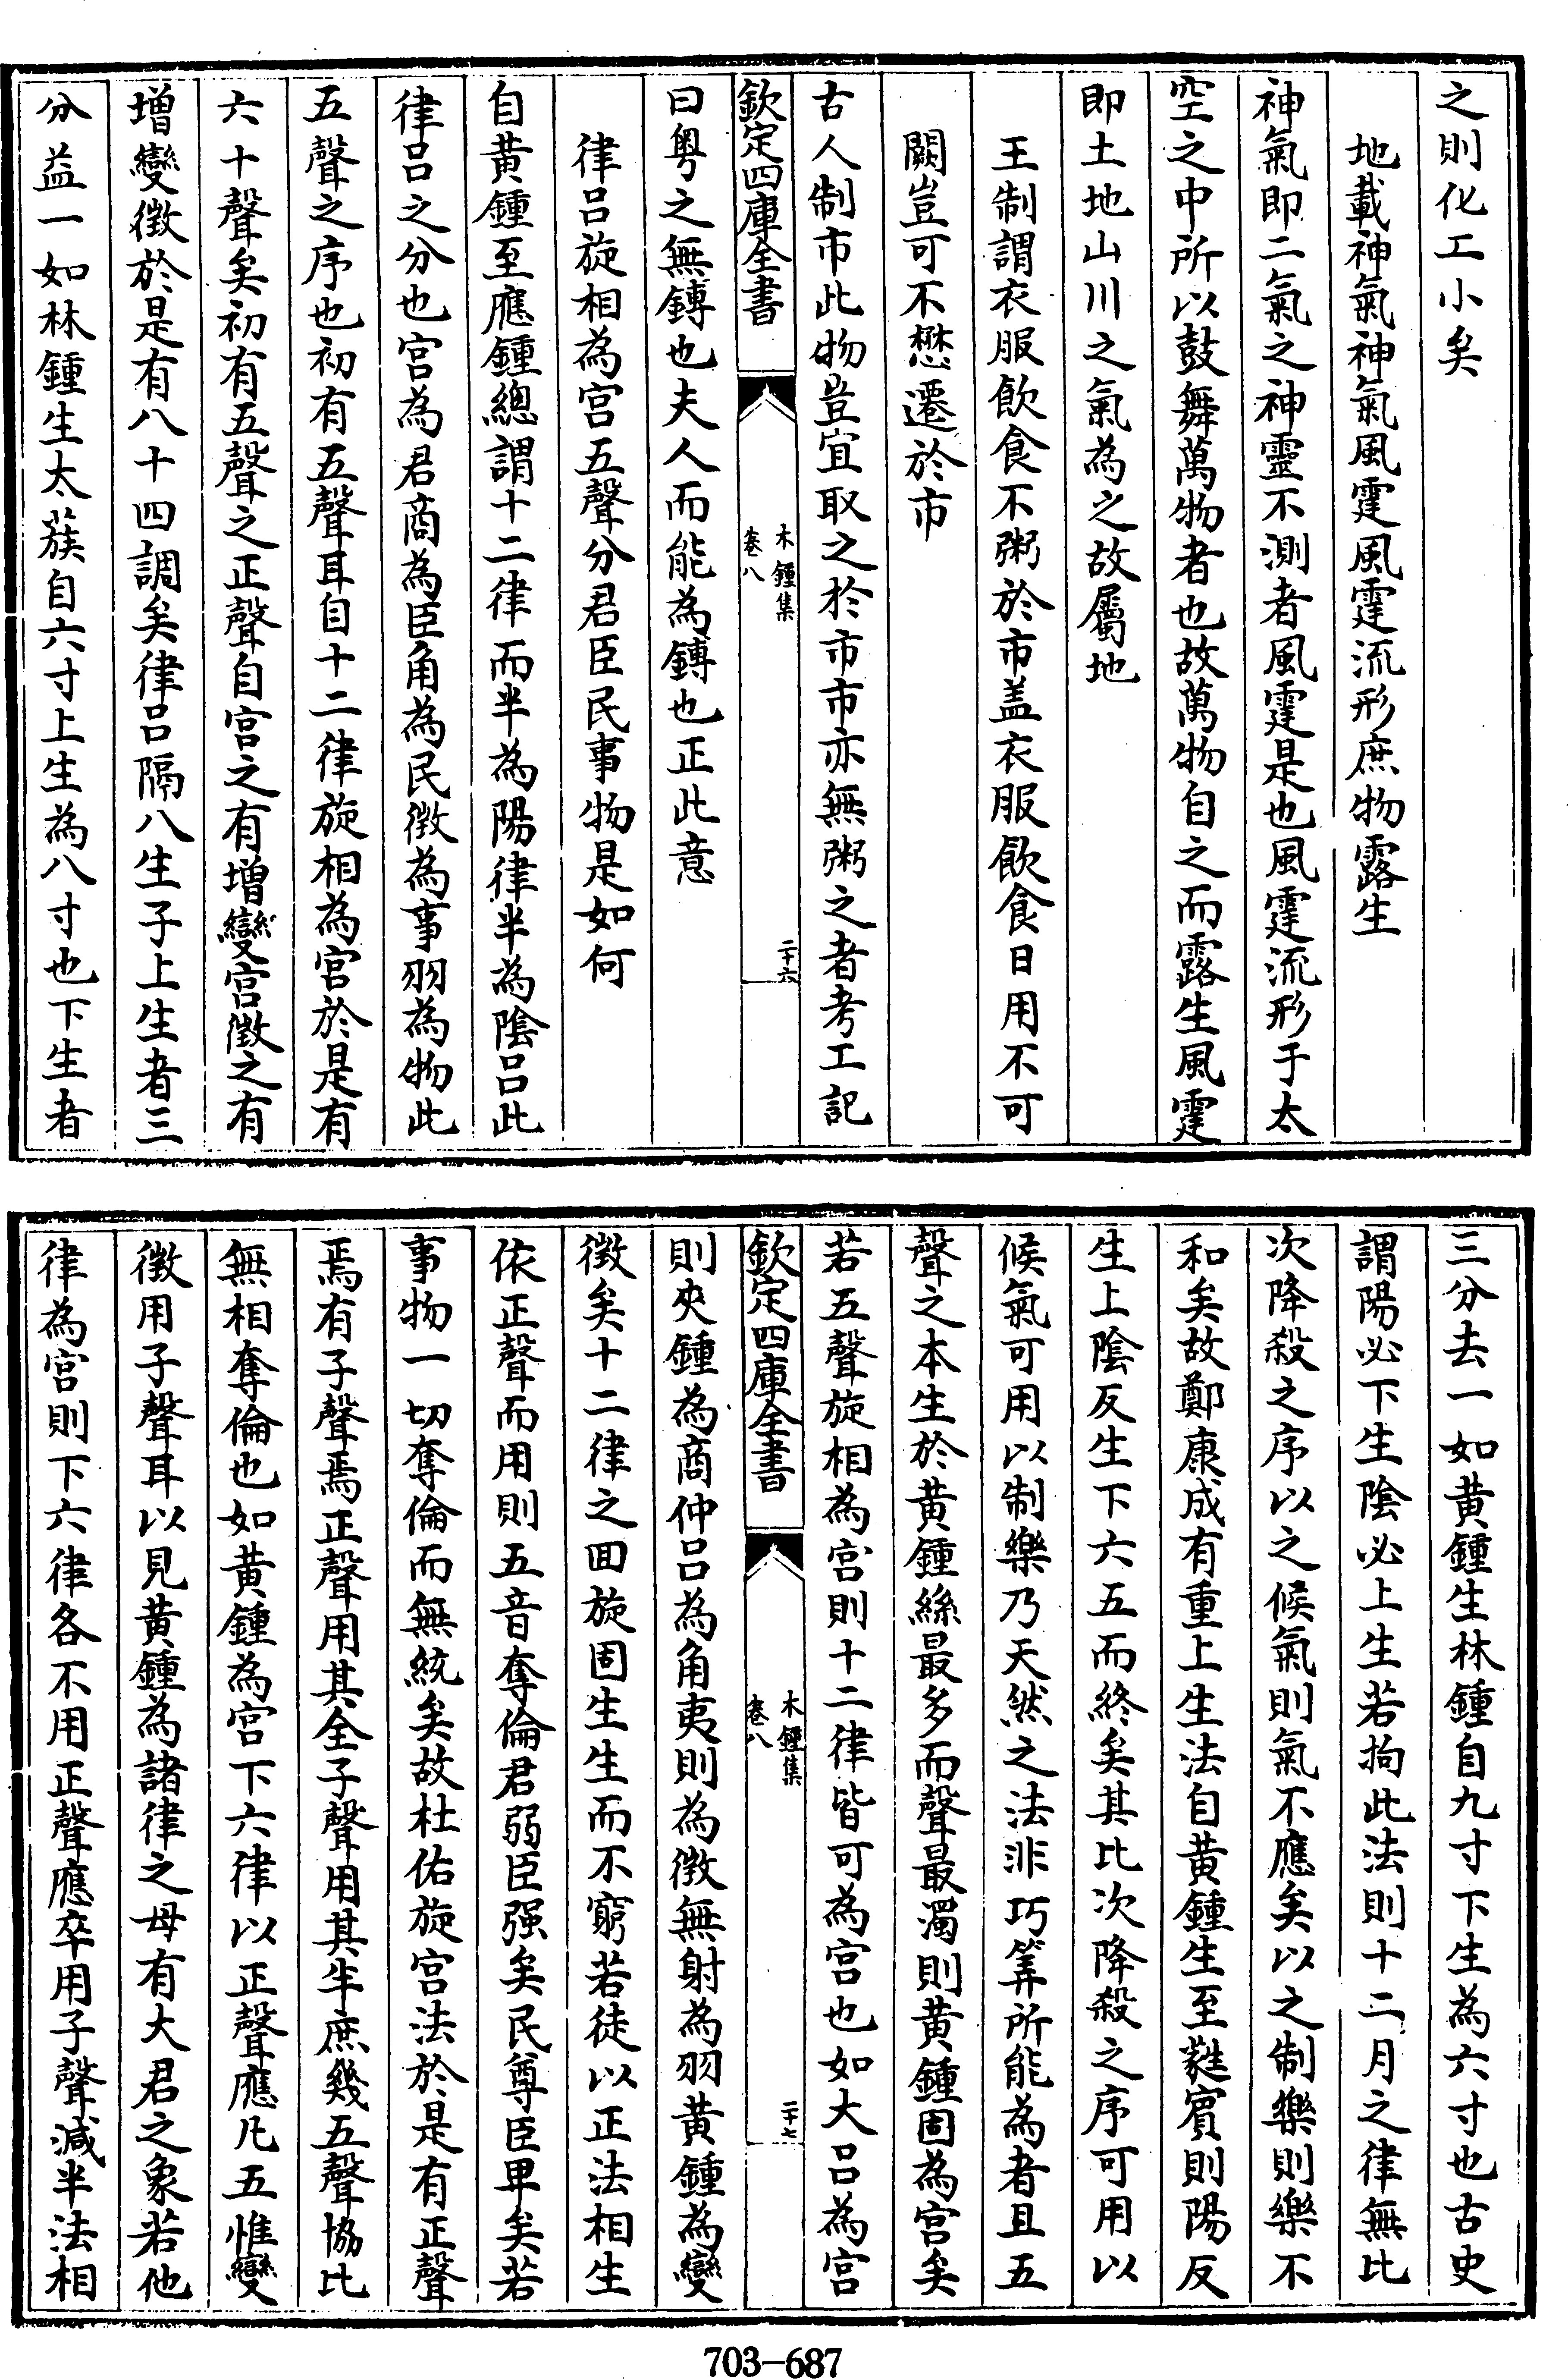 之則化工小矣
地載神氣神氣風霆風霆流形庶物露生
神氣即二氣之神靈不測者風霆是也風霆流形于太
空之中所以鼓舞萬物者也故萬物自之而露生風霆
即土地山川之氣為之故屬地
王制謂衣服飲食不粥於市盖衣服飲食日用不可
闕豈可不懋遷於市
古人制市此物豈宜取之於市市亦無粥之者考工記
欽定四庫全書
木鍾集
卷八
二十六
曰粤之無鎛也夫人而能為鎛也正此意
律吕旋相為宫五聲分君臣民事物是如何
自黄鍾至應鍾總謂十二律而半為陽律半為陰吕此
律吕之分也宫為君商為臣角為民徴為事羽為物此
五聲之序也初有五聲耳自十二律旋相為宫於是有
六十聲矣初有五聲之正聲自宫之有增變宫徴之有
增變徴於是有八十四調矣律吕隔八生子上生者三
分益一如林鍾生太蔟自六寸上生為八寸也下生者
三分去一如黄鍾生林鍾自九寸下生為六寸也古史
謂陽必下生陰必上生若拘此法則十二月之律無比
次降殺之序以之候氣則氣不應矣以之制樂則樂不
和矣故鄭康成有重上生法自黄鍾生至蕤賔則陽反
生上陰反生下六五而終矣其比次降殺之序可用以
候氣可用以制樂乃天然之法非巧筭所能為者且五
聲之本生於黄鍾絲最多而聲最濁則黄鍾固為宫矣
若五聲旋相為宫則十二律皆可為宫也如大吕為宫
欽定四庫全書
木鍾集
卷八
二十七
則夾鍾為商仲吕為角夷則為徴無射為羽黄鍾為變
徴矣十二律之回旋固生生而不窮若徒以正法相生
依正聲而用則五音奪倫君弱臣强矣民尊臣卑矣若
事物一切奪倫而無統矣故杜佑旋宫法於是有正聲
焉有子聲焉正聲用其全子聲用其半庶幾五聲協比
無相奪倫也如黄鍾為宫下六律以正聲應凡五惟變
徴用子聲耳以見黄鍾為諸律之母有大君之象若他
律為宫則下六律各不用正聲應卒用子聲減半法相
703-687